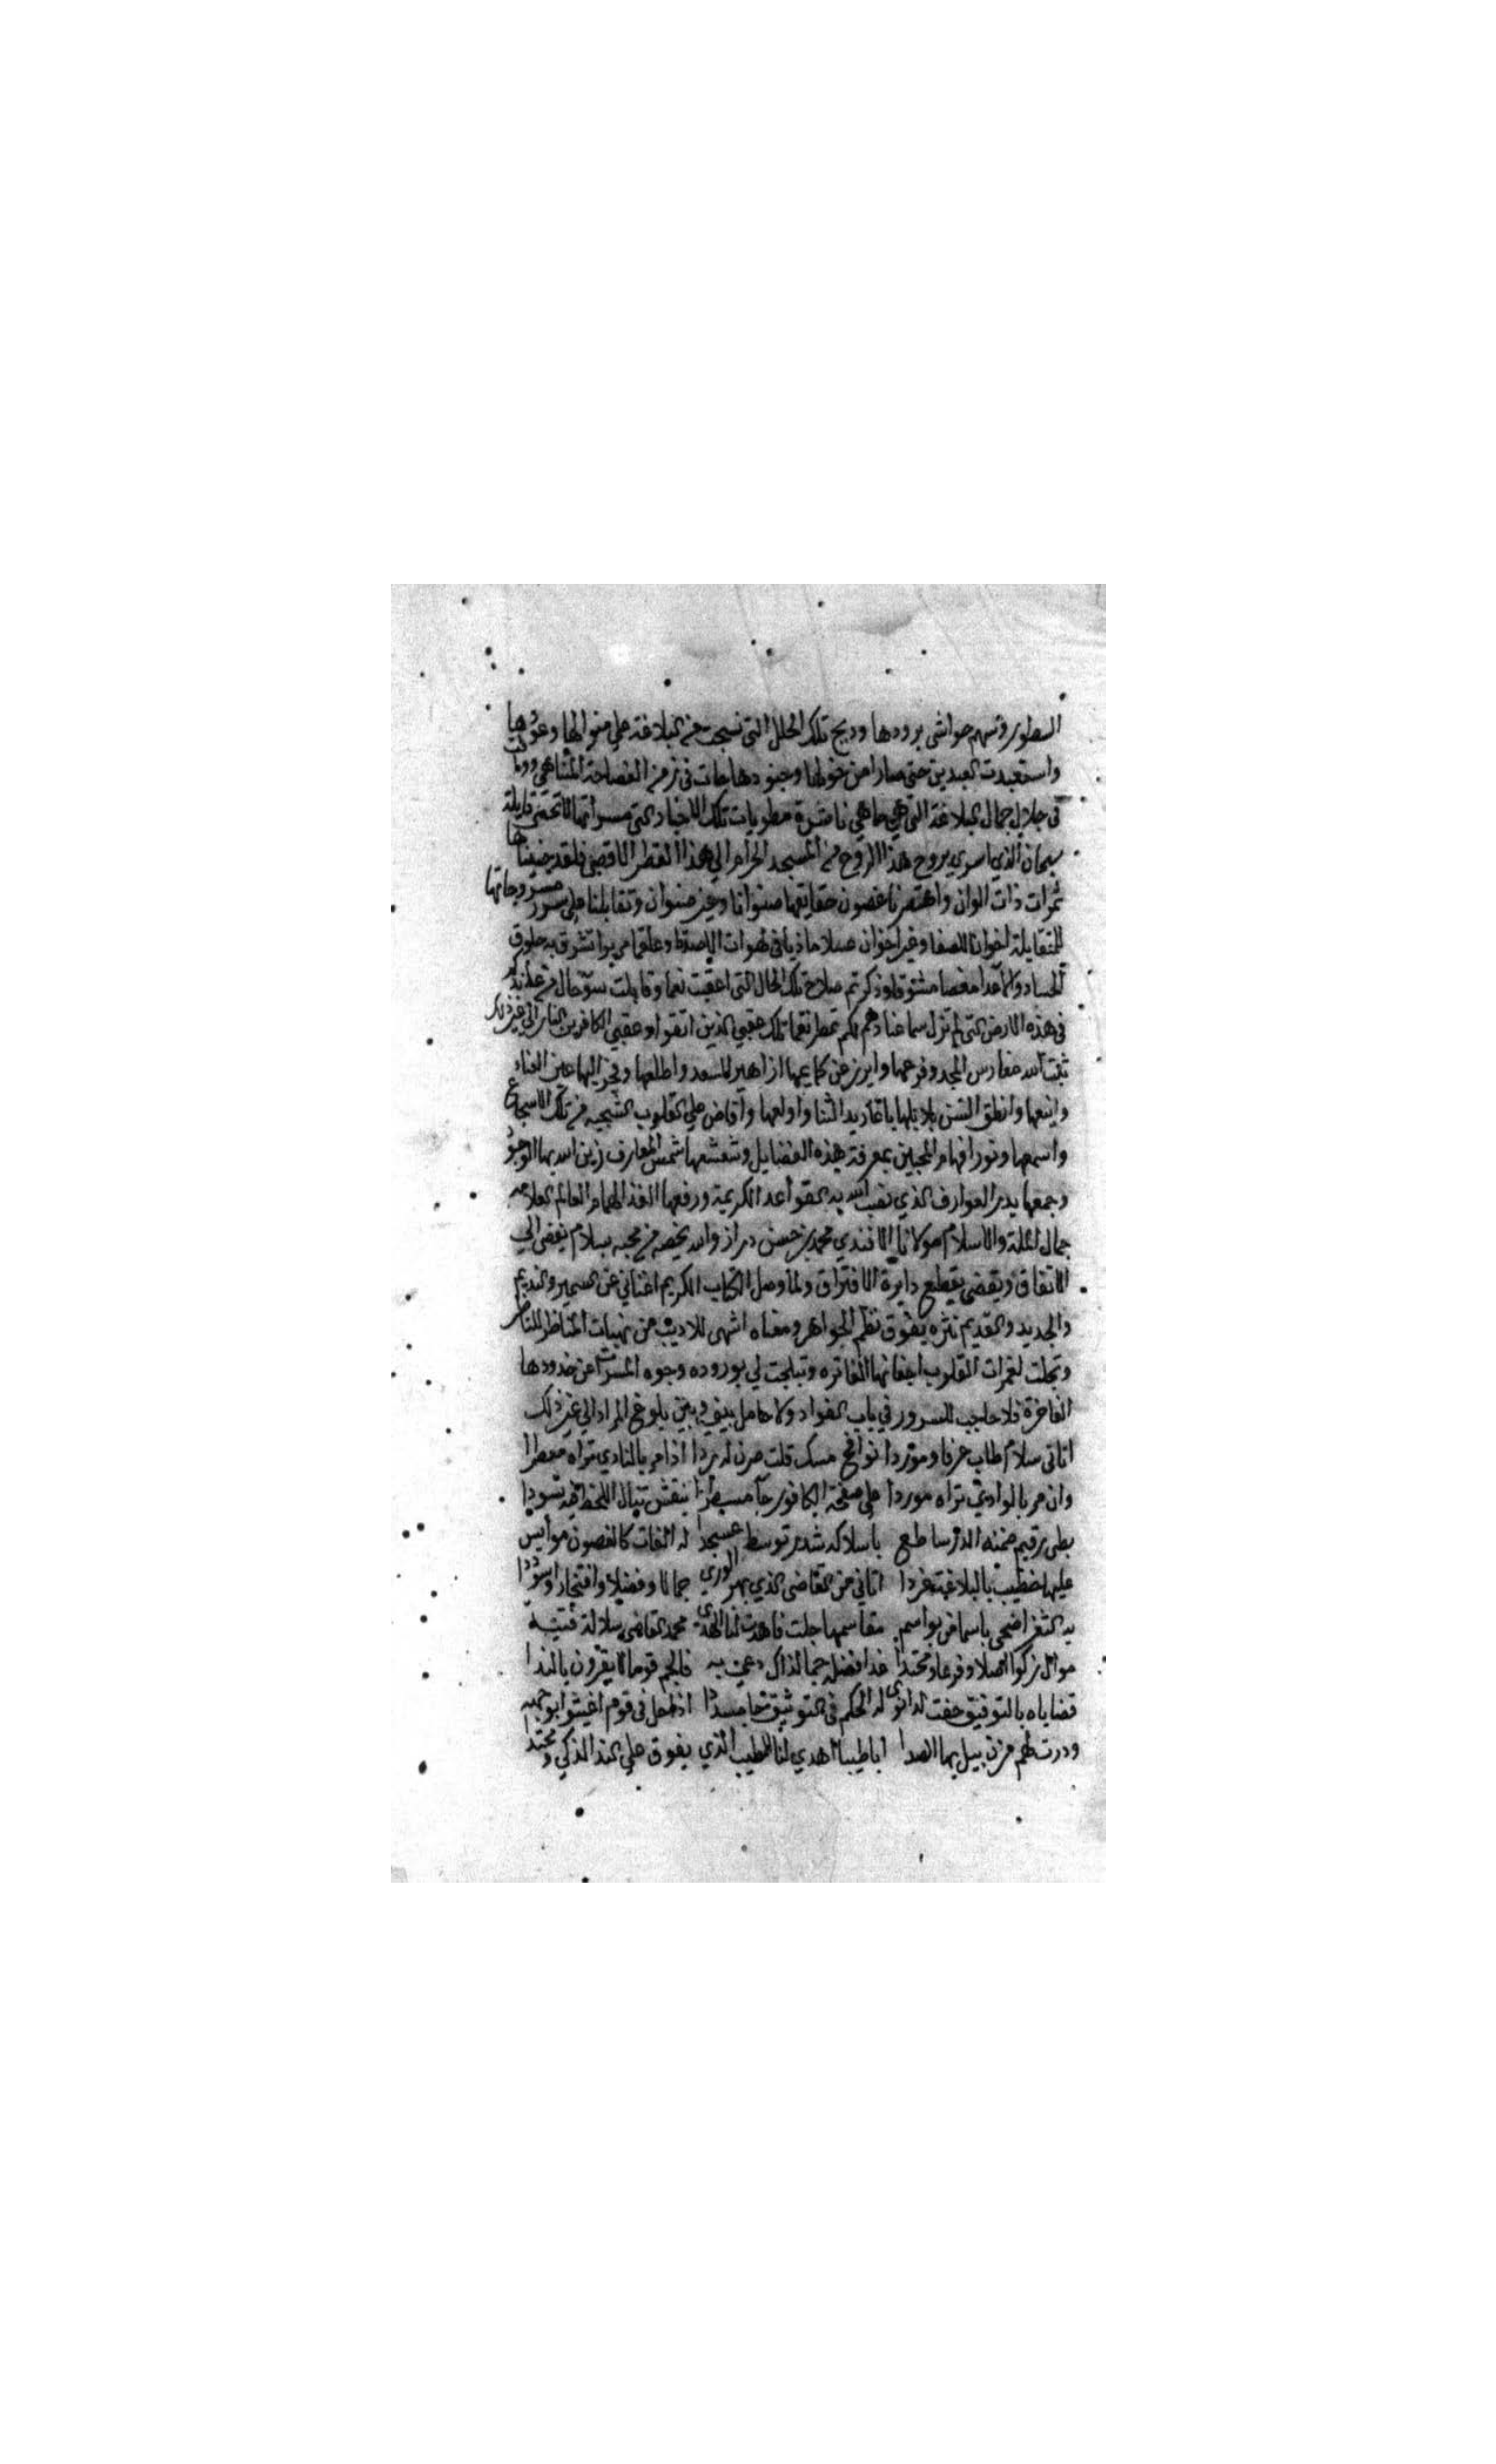 السطور وتسهم حواشي برودها ودبج تلك الحلل التي نسجت من البلاغة علي منوالها وعقودها
واستعبدت العبدين حتى صارا من خولها وجنودها جات في زمن الفصاحة المتناهي
في جلال جمال البلاغة التي هي ما هي ناشرة مطويات تلك الاخبار التي مسراتها لا تحصى قايلة
سبحان الذي اسري بروح هذا الروح من المسجد الحرام الي هذا القطر الاقصى فلقد جنينا
ثمرات ذات الوان واهتصرنا غصون حقايقها صنوانا وغير صنوان وتقابلنا علي سرر
المتقابلة اخوانا للصفا وغير اخوان سلاما ذيا في لهوات الاصدقا وعلقما مريرا تشرق به حلوق
الحساد والاعدا وذكرتم صلاح تلك الحال التي اعقبت نعما وقابلت سو حال من
في هذه الارض التي لم تزل سما عنادهم لكم تمطر نقما تلك عقبى الذين اتقوا وعقبي الكافرين النار الي غير ذلك
ثبت الله مغارس المجد وفرعها وابرز من كمايمها ازاهير السعد واطلعها وفجر اليها عين
واينعها وانطق السن بلابلها باغاريد الثنا واولعها وافاض علي القلوب الشجيه من تلك الاسجاع
واسمعها ونور افهام المحبين بمعرفة هذه الفضايل وشعشعها شمس المعارف زين الله بها الوجود
وجمعها بدر العوارف الذي نصب الله به القواعد الكريمة ورفعها الفذ الهمام العالم العلامه
جمال الملة والاسلام مولانا الافندي محمد بن حسن دراز والله يخصه من محبه بسلام يفضي الي
الاتفاق ويقضي بقطع دايرة الافتراق ولما وصل الكتاب الكريم اغناني عن السمير والنديم
والجديد والقديم نثره يفوق نظم الجواهر ومعناه اشهى للاديب من المناظر للناظر
وتجلت لغمرات القلوب اجفانها الفاتره وتبلجت لي بوروده وجوه المسرات عن خدودها
الفاخرة فلا حاجب للسرور في باب الفواد ولا حايل بيني وبين بلوغ المراد الي غير ذلك
اتاني سلام طاب عرفا وموردا نوافح مسك قلت صرن له ردا اذا مر بالنادي تراه معطرا
وان مر بالوادي تراه موردا علي صفحة الكافور جا مسطرا بنقش تبال اللحظ فيه تسودا
بطي رقيم ضمنه الدر ساطع باسلاكه شذر توسط عسجدا له الفات كالغصون موايس
عليها خطيب بالبلاغة غردا اتاني من القاضي الذي بهر الوري جمالا وفضلا وافتخارا وسوددا
به الثغر اضحي باسما في مواسم مقاسمها جلت فاهدت لنا الهدي محمد القاضي سلالة فتية
موال زكوا اصلا وفرعا ومحتدا غدا فضله جما لذاك دعي به فالجم قوما لا يقرون بالندا
قضاياه بالتوفيق حفت له الحكم في التوثيق اذا محل في قوم اغيثوا
ودرت لهم مزن يبل بها الصدا اباطيب اهدي لنا الطيب الذي يفوق علي الند الذكي ومحتدا